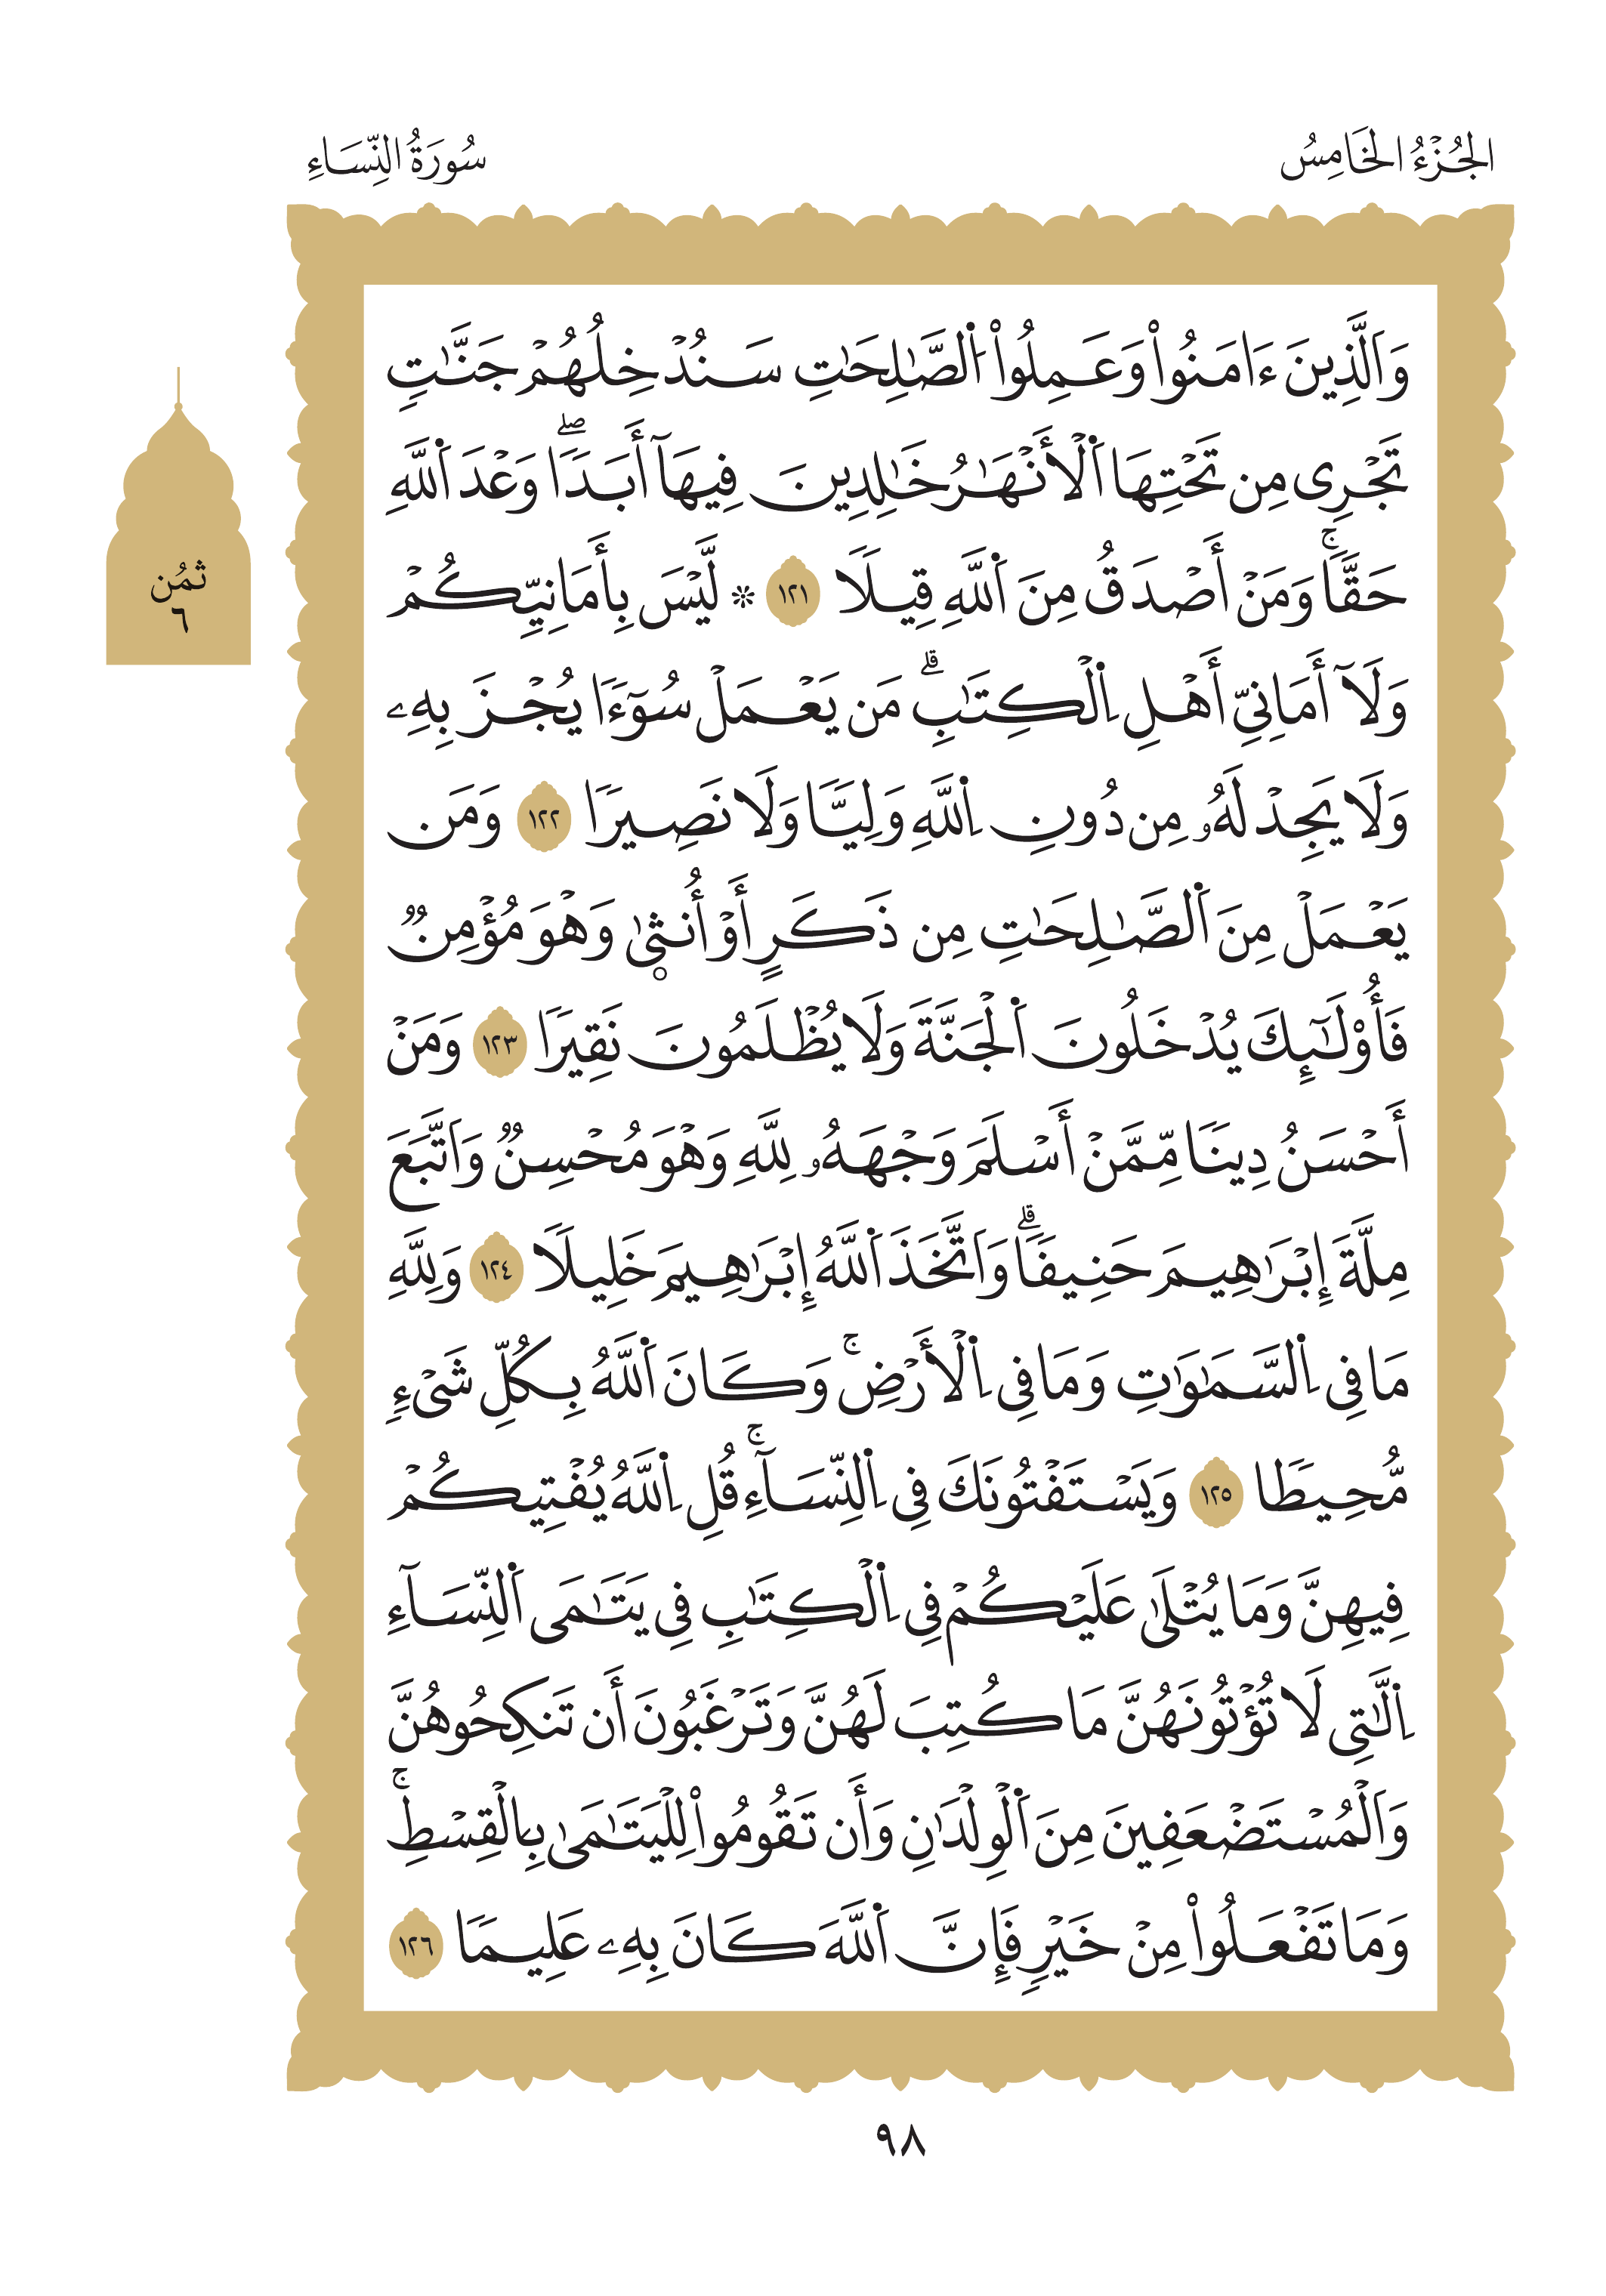 الجُزْءُ الخَامِسُ
سُورَةُ النِّسَاءِ
وَاَلَّذِينَ ءَامَنُواْ وَعَمِلُواْ اُ۬لصَّٰلِحَٰتِ سَنُدْخِلُهُمْ جَنَّٰتٖ
تَجْرِي مِن تَحْتِهَا اَ۬لْأَنْهَٰرُ خَٰلِدِينَ فِيهَآ أَبَداٗۖ وَعْدَ اَ۬للَّهِ
حَقّاٗۚ وَمَنْ أَصْدَقُ مِنَ اَ۬للَّهِ قِيلاٗ ١٢١ ۞ لَّيْسَ بِأَمَانِيِّكُمْ
وَلَآ أَمَانِيِّ أَهْلِ اِ۬لْكِتَٰبِۗ مَن يَعْمَلْ سُوٓءاٗ يُجْزَ بِهِۦ
وَلَا يَجِدْ لَهُۥ مِن دُونِ اِ۬للَّهِ وَلِيّاٗ وَلَا نَصِيراٗ ١٢٢ وَمَن
يَعْمَلْ مِنَ اَ۬لصَّٰلِحَٰتِ مِن ذَكَرٍ أَوْ أُنث۪ىٰ وَهْوَ مُؤْمِنٞ
فَأُوْلَٰٓئِكَ يُدْخَلُونَ اَ۬لْجَنَّةَ وَلَا يُظْلَمُونَ نَقِيراٗ ١٢٣ وَمَنْ
أَحْسَنُ دِيناٗ مِّمَّنْ أَسْلَمَ وَجْهَهُۥ لِلهِ وَهْوَ مُحْسِنٞ وَاَتَّبَعَ
مِلَّةَ إِبْرَٰهِيمَ حَنِيفاٗۗ وَاَتَّخَذَ اَ۬للَّهُ إِبْرَٰهِيمَ خَلِيلاٗ ١٢٤ وَلِلهِ
مَا فِي اِ۬لسَّمَٰوَٰتِ وَمَا فِي اِ۬لْأَرْضِۚ وَكَانَ اَ۬للَّهُ بِكُلِّ شَيْءٖ
مُّحِيطاٗ ١٢٥ وَيَسْتَفْتُونَكَ فِي اِ۬لنِّسَآءِۚ قُلِ اِ۬للَّهُ يُفْتِيكُمْ
فِيهِنَّ وَمَا يُتْلَىٰ عَلَيْكُمْ فِي اِ۬لْكِتَٰبِ فِي يَتَٰمَى اَ۬لنِّسَآءِ
اِ۬لَّٰتِي لَا تُؤْتُونَهُنَّ مَا كُتِبَ لَهُنَّ وَتَرْغَبُونَ أَن تَنكِحُوهُنَّ
وَاَلْمُسْتَضْعَفِينَ مِنَ اَ۬لْوِلْدَٰنِ وَأَن تَقُومُواْ لِلْيَتَٰمَىٰ بِالْقِسْطِۚ
وَمَا تَفْعَلُواْ مِنْ خَيْرٖ فَإِنَّ اَ۬للَّهَ كَانَ بِهِۦ عَلِيماٗ ١٢٦
ثمُن
٦
٩٨